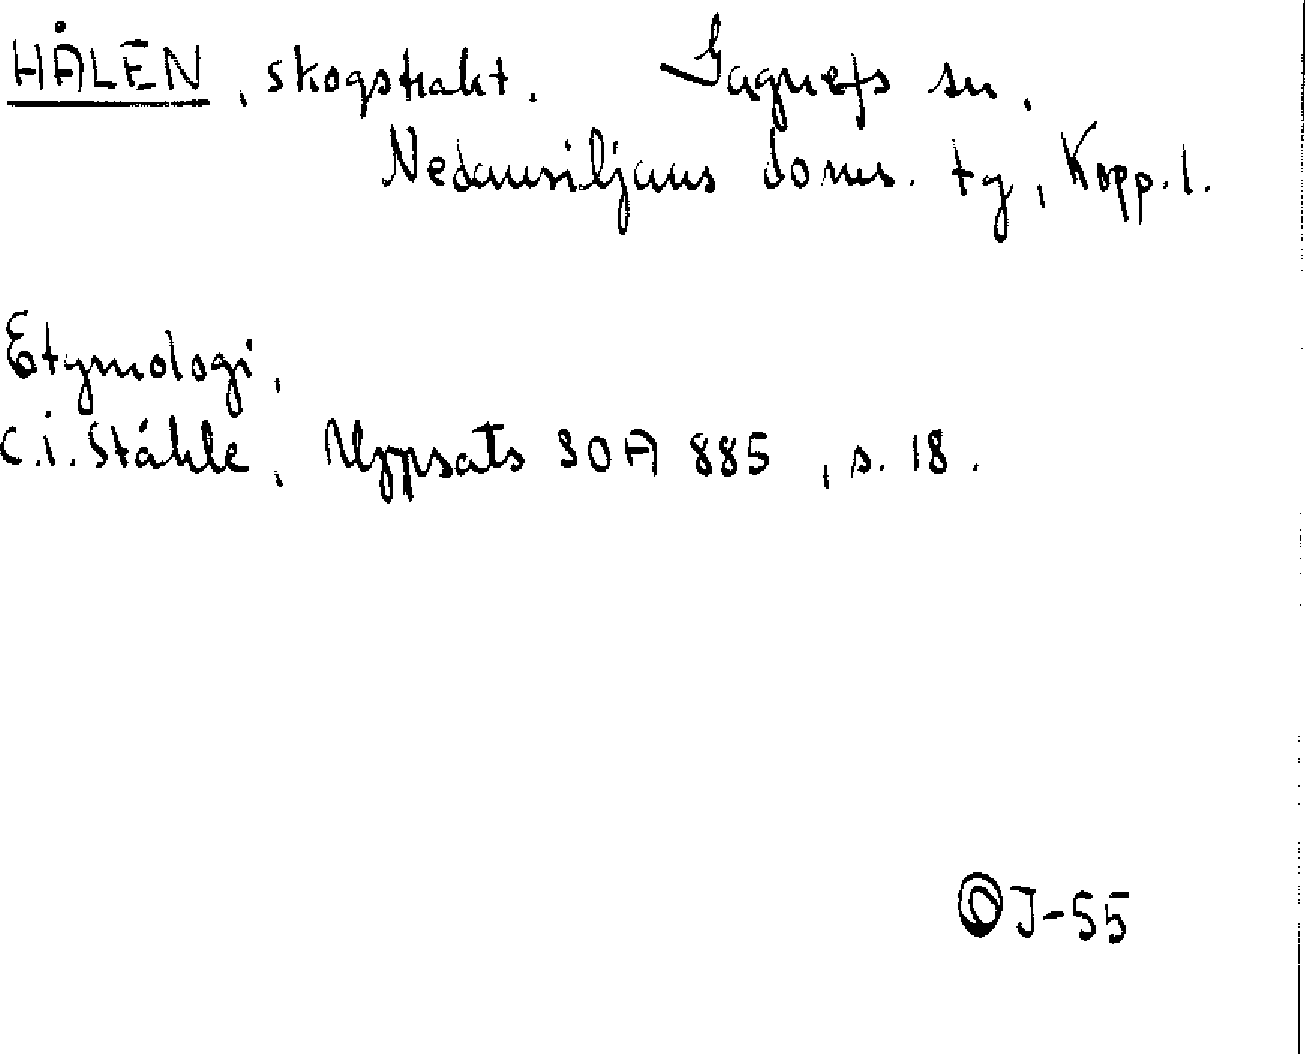 HÅLEN, skogstrakt. Gagnefs sn,
Nedansiljans doms. tg, Kopp. l.
Etymologi,
C.I. Ståhle, Uppsats SOA 885, s. 18.
OJ-55